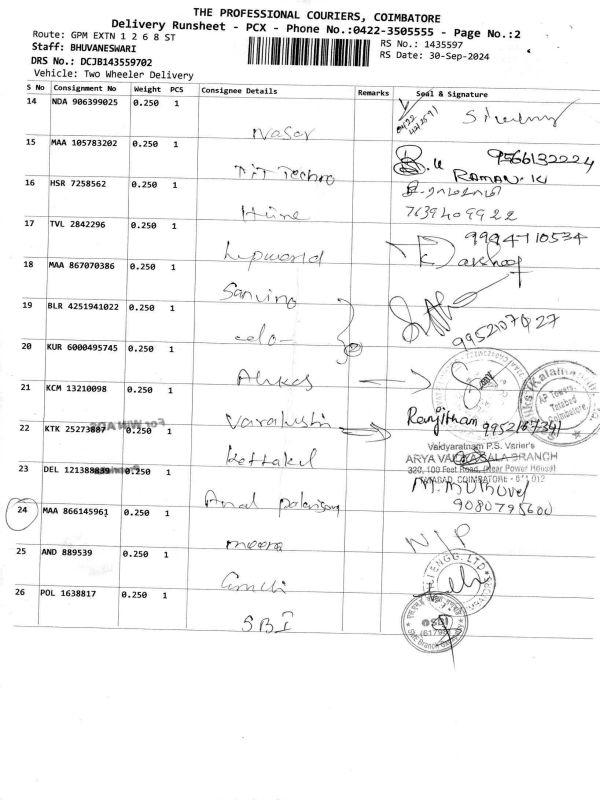 THE PROFESSIONAL COURIERS, COIMBATORE
Delivery Runsheet - PCX - Phone No.:0422-3505555 - Page No.:2
Route: GPM EXTN 1 2 6 8 ST
RS No.: 1435597
Staff: BHUVANESWARI
RS Date: 30-Sep-2024
DRS No.: DCJB143559702
Vehicle: Two Wheeler Delivery
S No Consignment No Weight PCS Consignee Details Remarks Seal & Signature
14 NDA 906399025 0.250 1
Naser
15 MAA 105783202 0.250 1
9566132224
RAMAN. K
TFT Techno
16 HSR 7258562 0.250 1
7639409922
17 TVL 2842296 0.250 1
9994710534
Lupworld
18 MAA 867070386 0.250 1
19 BLR 4251941022 0.250 1
9952107027
20 KUR 6000495745 0.250 1
21 KCM 13210098 0.250 1
AP Towers,
Tatabad
Coimbatore
Ranjitham
22 KTK 25273887 0.250 1
Kottakal
Vaidyaratnam P.S. Varier's
ARYA VAIDYASALA BRANCH
320, 100 Feet Road, (Near Power House)
TATABAD, COIMBATORE - 641 012
23 DEL 121388839 0.250 1
9080795600
24 MAA 866145961 0.250 1
N/P
meera
25 AND 889539 0.250 1
ENGG. LTD
26 POL 1638817 0.250 1
SBI
SBI